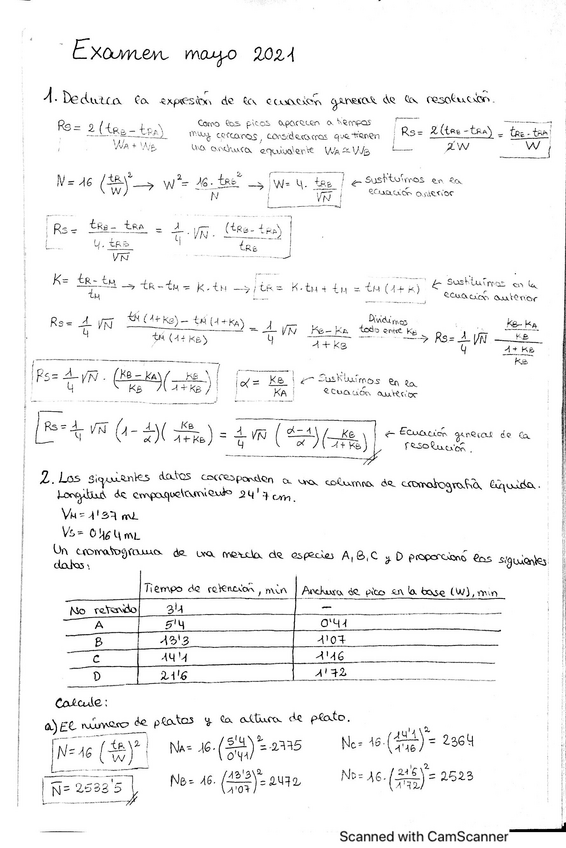 Examen mayo 2021
1. Deduzca la expresión de la ecuación general de la resolución.
Rs = 2(tRB - tRA) / WA + WB
Como los picos aparecen a tiempos
muy cercanos, consideramos que tienen
una anchura equivalente WA ≃ WB
Rs = 2(tRB - tRA) / 2W = tRB - tRA / W
N = 16 (tR / W)² → W² = 16 · tRB² / N → W = 4 · tRB / √N ← Sustituimos en la
ecuación anterior
Rs = tRB - tRA / 4 · tRB / √N = 1/4 · √N · (tRB - tRA) / tRB
K = tR - tM / tM → tR - tM = K · tM → tR = K · tM + tM = tM (1 + K) ← Sustituimos en la
ecuación anterior
Rs = 1/4 √N tM (1 + KB) - tM (1 + KA) / tM (1 + KB) = 1/4 √N KB - KA / 1 + KB Dividimos
todo entre KB → Rs = 1/4 √N KB - KA / KB / 1 + KB / KB
Rs = 1/4 √N · (KB - KA / KB) (KB / 1 + KB) α = KB / KA ← Sustituimos en la
ecuación anterior
Rs = 1/4 √N (1 - 1/α) (KB / 1 + KB) = 1/4 √N (α - 1 / α) (KB / 1 + KB) ← Ecuación general de la
resolución.
2. Los siguientes datos corresponden a una columna de cromatografía líquida.
Longitud de empaquetamiento 24'7 cm.
VM = 1'37 mL
VS = 0'164 mL
Un cromatograma de una mezcla de especies A, B, C y D proporcionó los siguientes
datos:
Tiempo de retención, min Anchura de pico en la base (W), min
No retenido 3'1 —
A 5'4 0'41
B 13'3 1'07
C 14'1 1'16
D 21'6 1'72
Calcule:
a) El número de platos y la altura de plato.
N = 16 (tR / W)² NA = 16 · (5'4 / 0'41)² = 2775 NC = 16 · (14'1 / 1'16)² = 2364
N̄ = 2533'5 NB = 16 · (13'3 / 1'07)² = 2472 ND = 16 · (21'6 / 1'72)² = 2523
Scanned with CamScanner